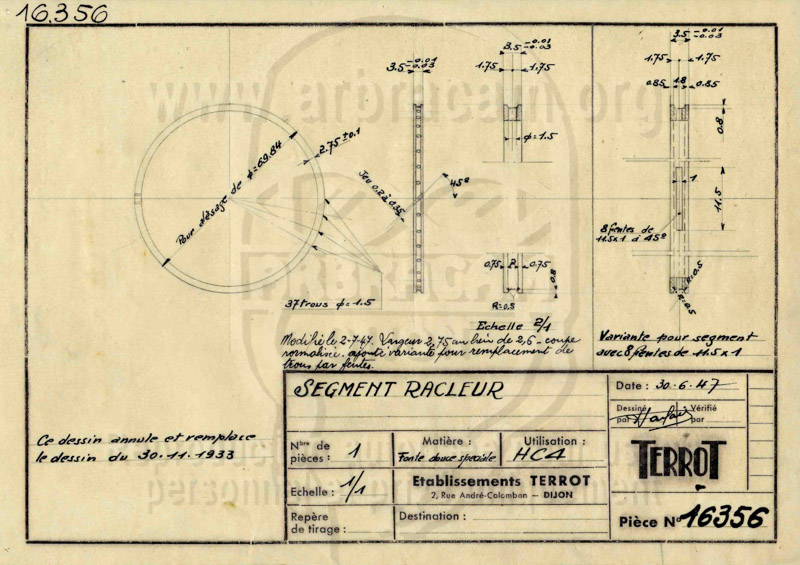 16.356
3.5 -0.01 -0.03
3.5 -0.01 -0.03
3.5 -0.01 -0.03
1.75 1.75
1.75 1.75
0.85 1.8 0.85
www.arbracam.org
2.75 ±0.1
Pour alésage de φ=69.84
Jeu 0.2 à 0.35
45°
φ=1.5
0.8
11.5
1
8 fentes de
11.5x1 à 45°
0.75 0.75
0.8
R=0.5
R=0.5
R=0.5
37 trous φ=1.5
ARBRACAM
Echelle 2/1
Modifié le 2-7-47. Largeur 2,75 au lieu de 2,6 - coupe
normalisée. ajouté variante pour remplacement de
trous par fentes.
Variante pour segment
avec 8 fentes de 11.5x1
SEGMENT RACLEUR
Date : 30-6-47
Dessiné par
Vérifié par
Ce dessin annule et remplace
le dessin du 30.11.1933
Nbre de pièces : 1
Matière : Fonte douce spéciale
Utilisation : HC4
TERROT
Echelle : 1/1
Etablissements TERROT
2, Rue André-Colomban — DIJON
Repère de tirage :
Destination :
Pièce N° 16356